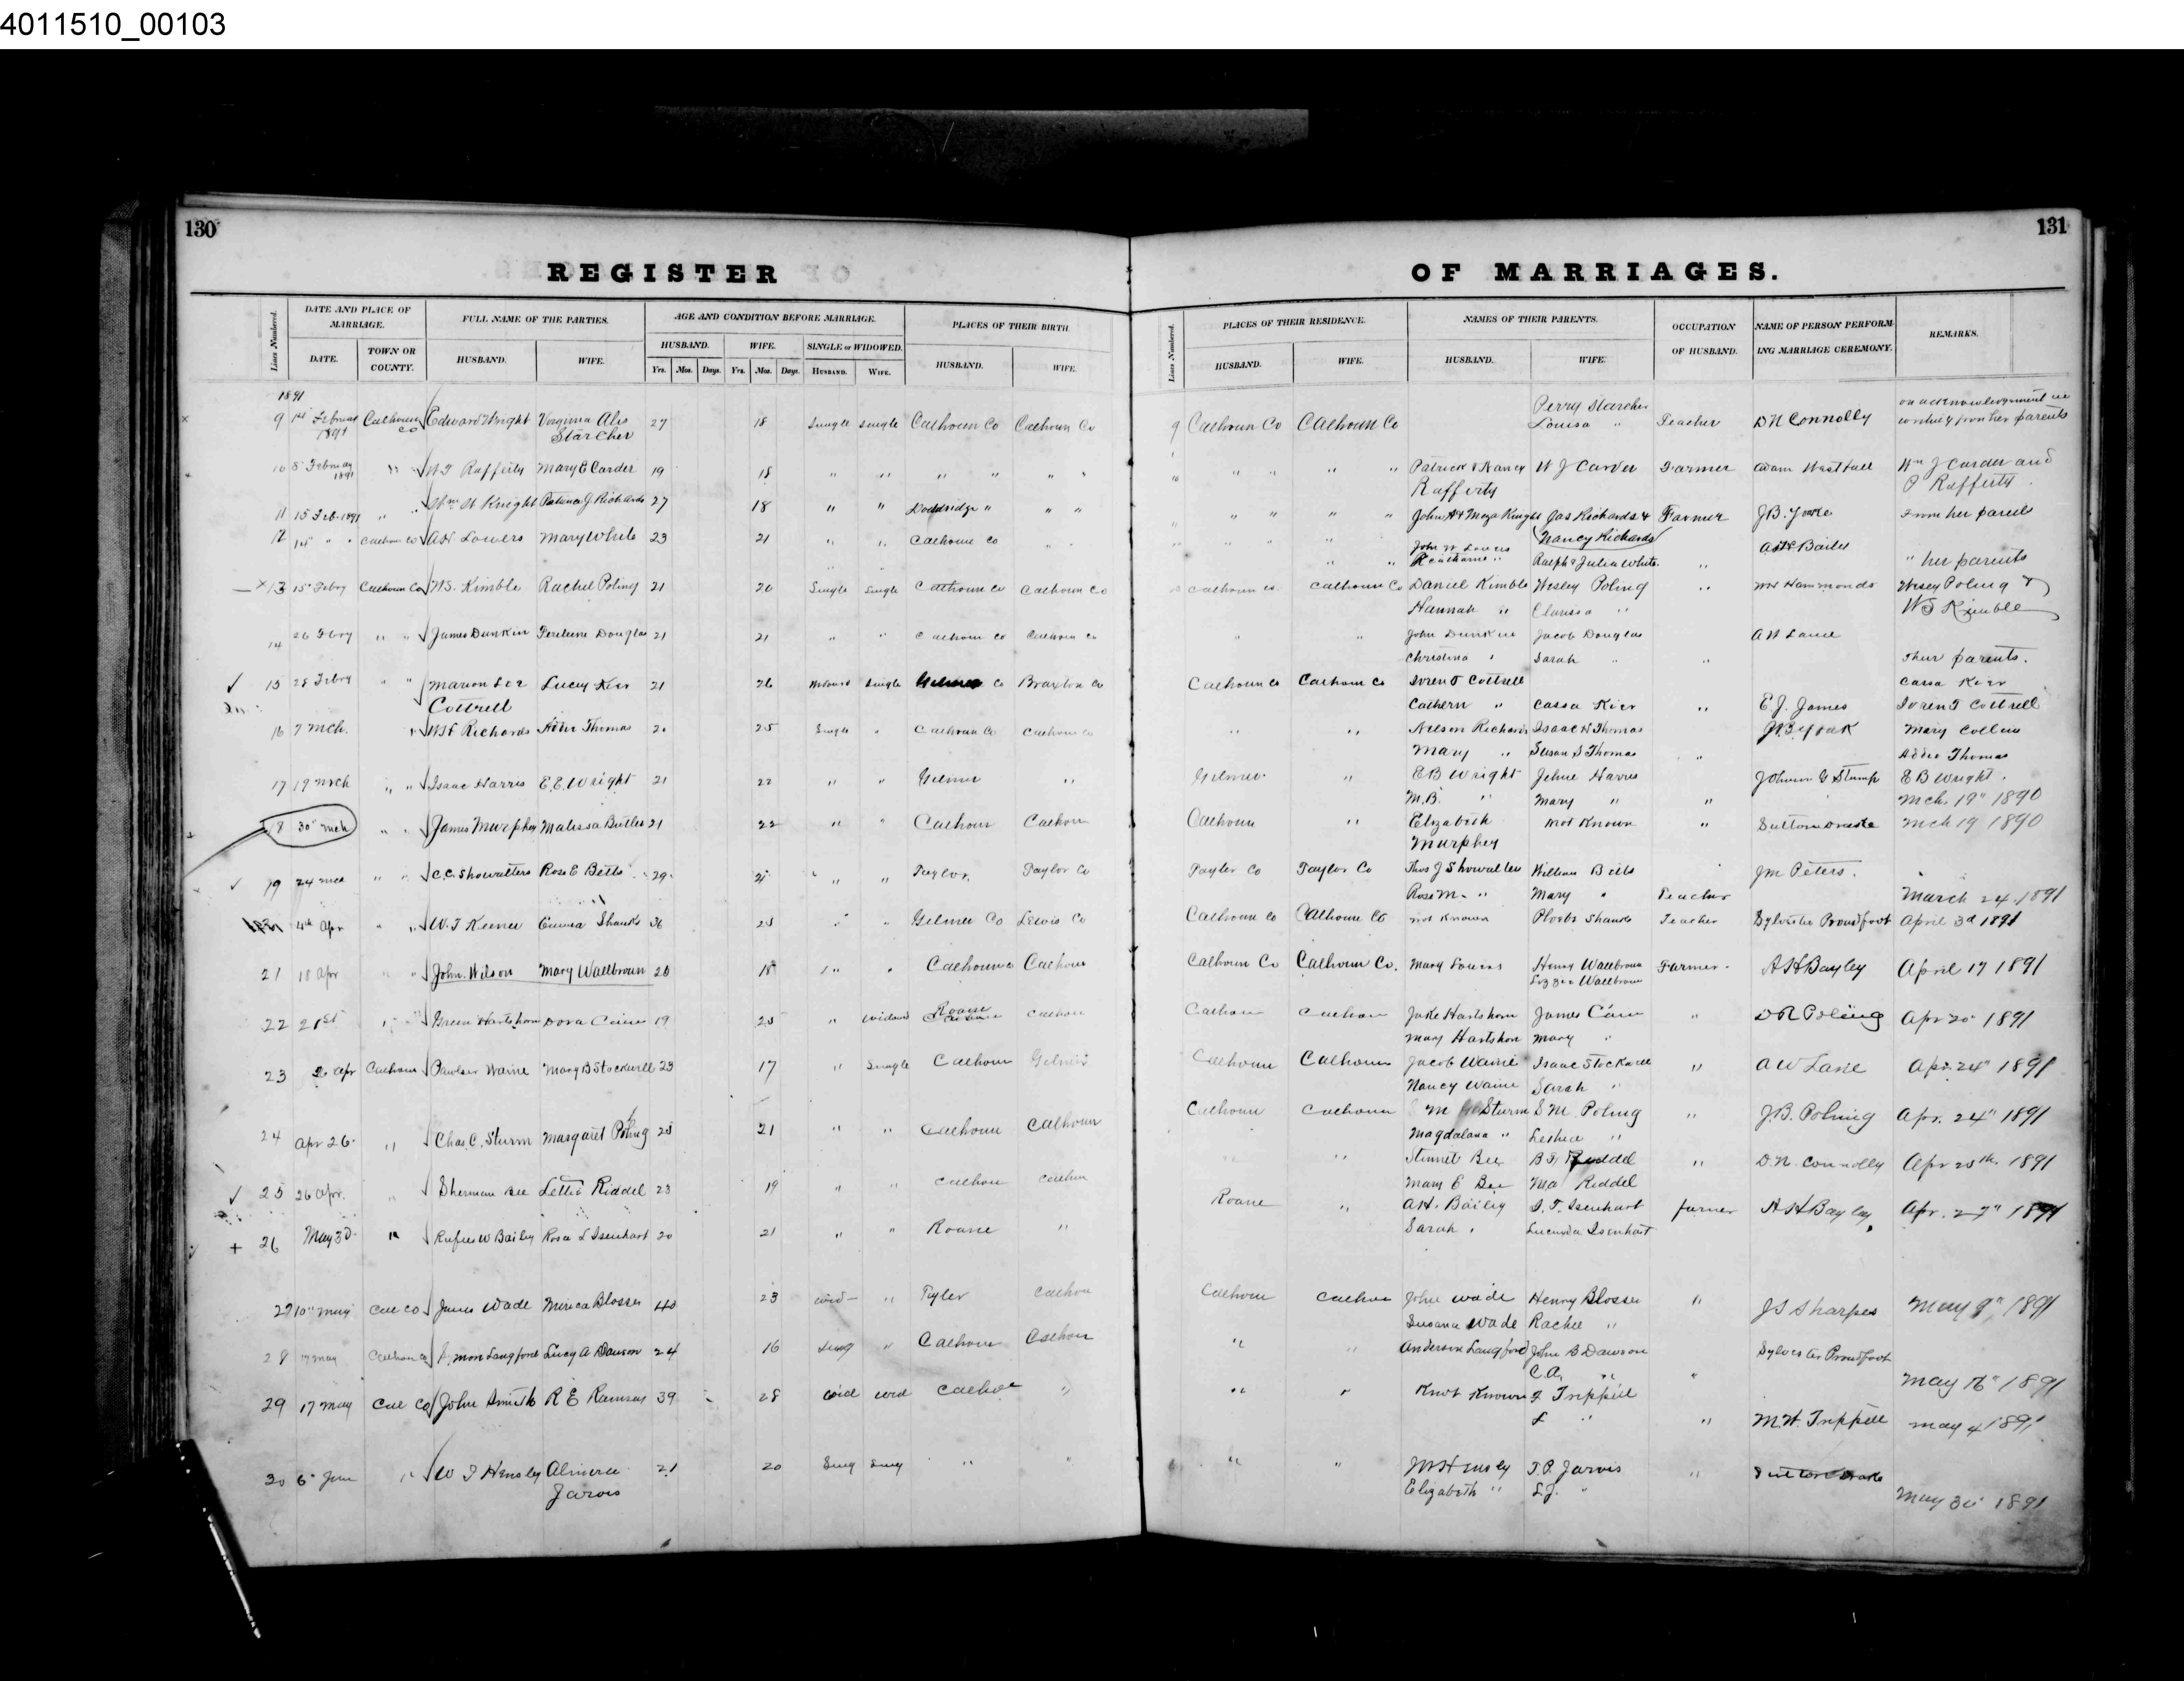 4011510_00103
130
REGISTER
Lines Numbered.
DATE AND PLACE OF MARRIAGE.
FULL NAME OF THE PARTIES.
AGE AND CONDITION BEFORE MARRIAGE.
PLACES OF THEIR BIRTH.
DATE.
TOWN OR COUNTY.
HUSBAND.
WIFE.
HUSBAND.
WIFE.
SINGLE or WIDOWED.
HUSBAND.
WIFE.
Yrs. Mos. Days. Yrs. Mos. Days. HUSBAND. WIFE.
1891
9 1st Februar 1891 Calhoun Co Edward Wright Virginia Starcher 27 18 Single Single Calhoun Co Calhoun Co
10 8 1891 " " Rafferty Mary E Carder 19 18 " " " " " "
11 15 Feb 1891 " " Wm Knight J. Richards 27 18 " " Doddridge " " "
12 " " Calhoun Co Lowers Mary White 23 21 " " Calhoun Co " "
13 15 Febry Calhoun Co Kimble Rachel Poling 21 20 Single Single Calhoun Co Calhoun Co
14 26 Febry " " James Dunkin Douglas 21 21 " " Calhoun Co Calhoun Co
15 28 Febry " " Marion Cottrell Lucy 21 26 Single Gilmer Co Braxton Co
16 7 Mch. " Richards Addie Thomas 20 25 Single " Calhoun Co Calhoun Co
17 19 Mch " " Isaac Harris E. E. Wright 21 22 " " Gilmer "
18 30" Mch " " James Murphey Malissa Butler 21 22 " " Calhoun Calhoun
19 24 Mch " " C.C. Showalters Rose E Betts 29 21 " " Taylor, Taylor Co
4th Apr " " W. T Emma Shanks 36 " Gilmer Co Lewis Co
21 18 Apr " " John Wilson Mary Wallbroun 18 " " Calhoun Calhoun
22 21st " " Green Hartshorn Dora 19 " Widowed Roane Calhoun
23 Apr Calhoun Waine Mary B Stockwell 23 17 " Single Calhoun Gilmer
24 Apr 26 " Chas. C. Sturm Margaret Poling 21 " " Calhoun Calhoun
25 26 Apr. " Sherman Bee Lettie Riddel 23 19 " " Calhoun Calhoun
26 May 3d " Rufus W Bailey Rosa L Isenhart 20 21 " " Roane "
27 10" May Cal Co James Wade Blosser 40 23 Wid " Tyler Calhoun
28 May Calhoun Co Langford Lucy A Dawson 24 16 Sing " Calhoun Calhoun
29 17 May Cal Co John Smith R E Ramsey 39 28 Wid Wid Calhoun "
30 6" June " Hensley Almira Jarvis 21 20 Sing Sing " "
131
OF MARRIAGES.
Lines Numbered.
PLACES OF THEIR RESIDENCE.
NAMES OF THEIR PARENTS.
OCCUPATION OF HUSBAND.
NAME OF PERSON PERFORMING MARRIAGE CEREMONY.
REMARKS.
HUSBAND.
WIFE.
HUSBAND.
WIFE.
9 Calhoun Co Calhoun Co Perry Starcher Louisa " Teacher D N Connolly on acknowledgment in writing from her parents
10 " " " " Patrick & Nancy Rafferty W J Carder Farmer Adam Westfall Wm J Carder and P Rafferty
" " " " Knight Jas Richards & Nancy Richards Farmer J B. From her parents
" " " " John W Lowers Ralph & Julia White " " her parents
Calhoun Co Calhoun Co Daniel Kimble Hannah " Wesley Poling Clarissa " " Hammonds Wesley Poling & Kimble
" " John Dunkin Christina " Jacob Douglas Sarah " " A W Lane Their parents.
Calhoun Co Calhoun Co Cottrell Cathern " Cassa " E. J. James Cassa Cottrell
" " Nelson Richards Mary " Isaac W Thomas Susan S Thomas " Mary Collins Addie Thomas
Gilmer " E B Wright M.B. " Harris Mary " " Johnson G Stump E B Wright. Mch. 19" 1890
Calhoun " Elizabeth Murphey Not Known " Sutton Drake Mch 19 1890
Taylor Co Taylor Co Thos J Showalters Rose M. " William Betts Mary " Teacher J M Peters. March 24, 1891
Calhoun Co Calhoun Co Not Known Phoebe Shanks Teacher Sylvester Proudfoot April 3d 1891
Calhoun Co Calhoun Co. Mary Henry Wallbroun Wallbroun Farmer A H Bayley April 17 1891
Calhoun Calhoun Jake Hartshorn Mary Hartshorn James Mary " " D R Poling Apr 20 1891
Calhoun Calhoun Jacob Waine Nancy Waine Isaac Stockwell Sarah " " A W Lane Apr. 24" 1891
Calhoun Calhoun M Sturm Magdalana " S M. Poling " " J. B. Poling Apr. 24" 1891
" " Stinnet Bee Mary E Bee Riddel Riddel " D. N. Connolly Apr 25th 1891
Roane " A H. Bailey Sarah " Isenhart Lucinda Isenhart farmer A H Bayley Apr. 27" 1891
Calhoun Calhoun John Wade Susana Wade Henry Blosser Rachel " " J S Sharpes May 9", 1891
" " Anderson Langford John B Dawson C.A. " " Sylvester Proudfoot May 16" 1891
" " Knot Known Trippill " " M. H. Trippill May 4 1891
" " Hensley Elizabeth " T. P. Jarvis L.J. " " Sutton Drake May 30 1891